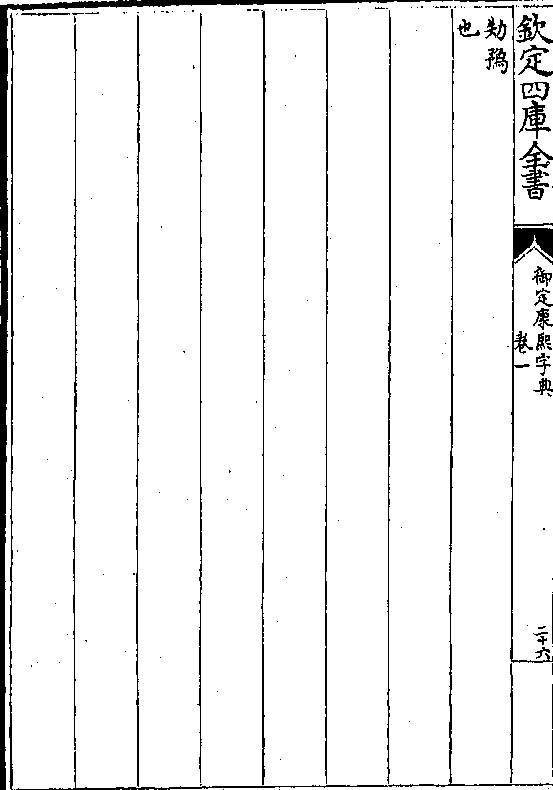 欽定四庫全書
御定康熙字典
卷一
二十六
也